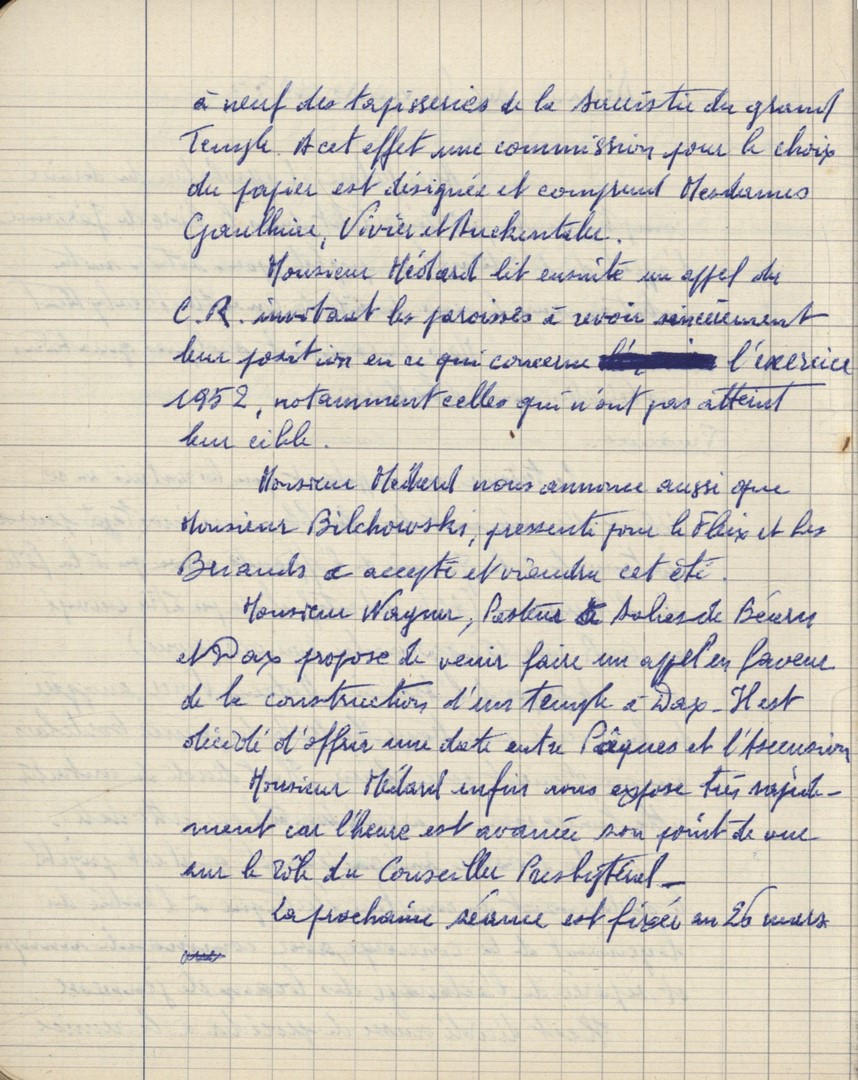 à neuf des tapisseries de la sacristie du grand
Temple. A cet effet une commission pour le choix
du papier est désignée et comprend Mesdames
Gaulhiac, Vivier et
Monsieur Médard lit ensuite un appel du
C.R. invitant les paroisses à revoir sincèrement
leur position en ce qui concerne l'exercice
1952, notamment celles qui n'ont pas atteint
leur cible.
Monsieur Médard nous annonce aussi que
Monsieur Bilchowski, pressenti pour le Fleix et les
Briands a accepté et viendra cet été.
Monsieur Wagner, Pasteur à Salies de Béarn
et Dax propose de venir faire un appel en faveur
de la construction d'un temple à Dax - Il est
décidé d'offrir une date entre Pâques et l'Ascension
Monsieur Médard enfin nous expose très rapide-
ment car l'heure est avancée son point de vue
sur le rôle du Conseiller Presbytéral -
La prochaine séance est fixée au 26 mars